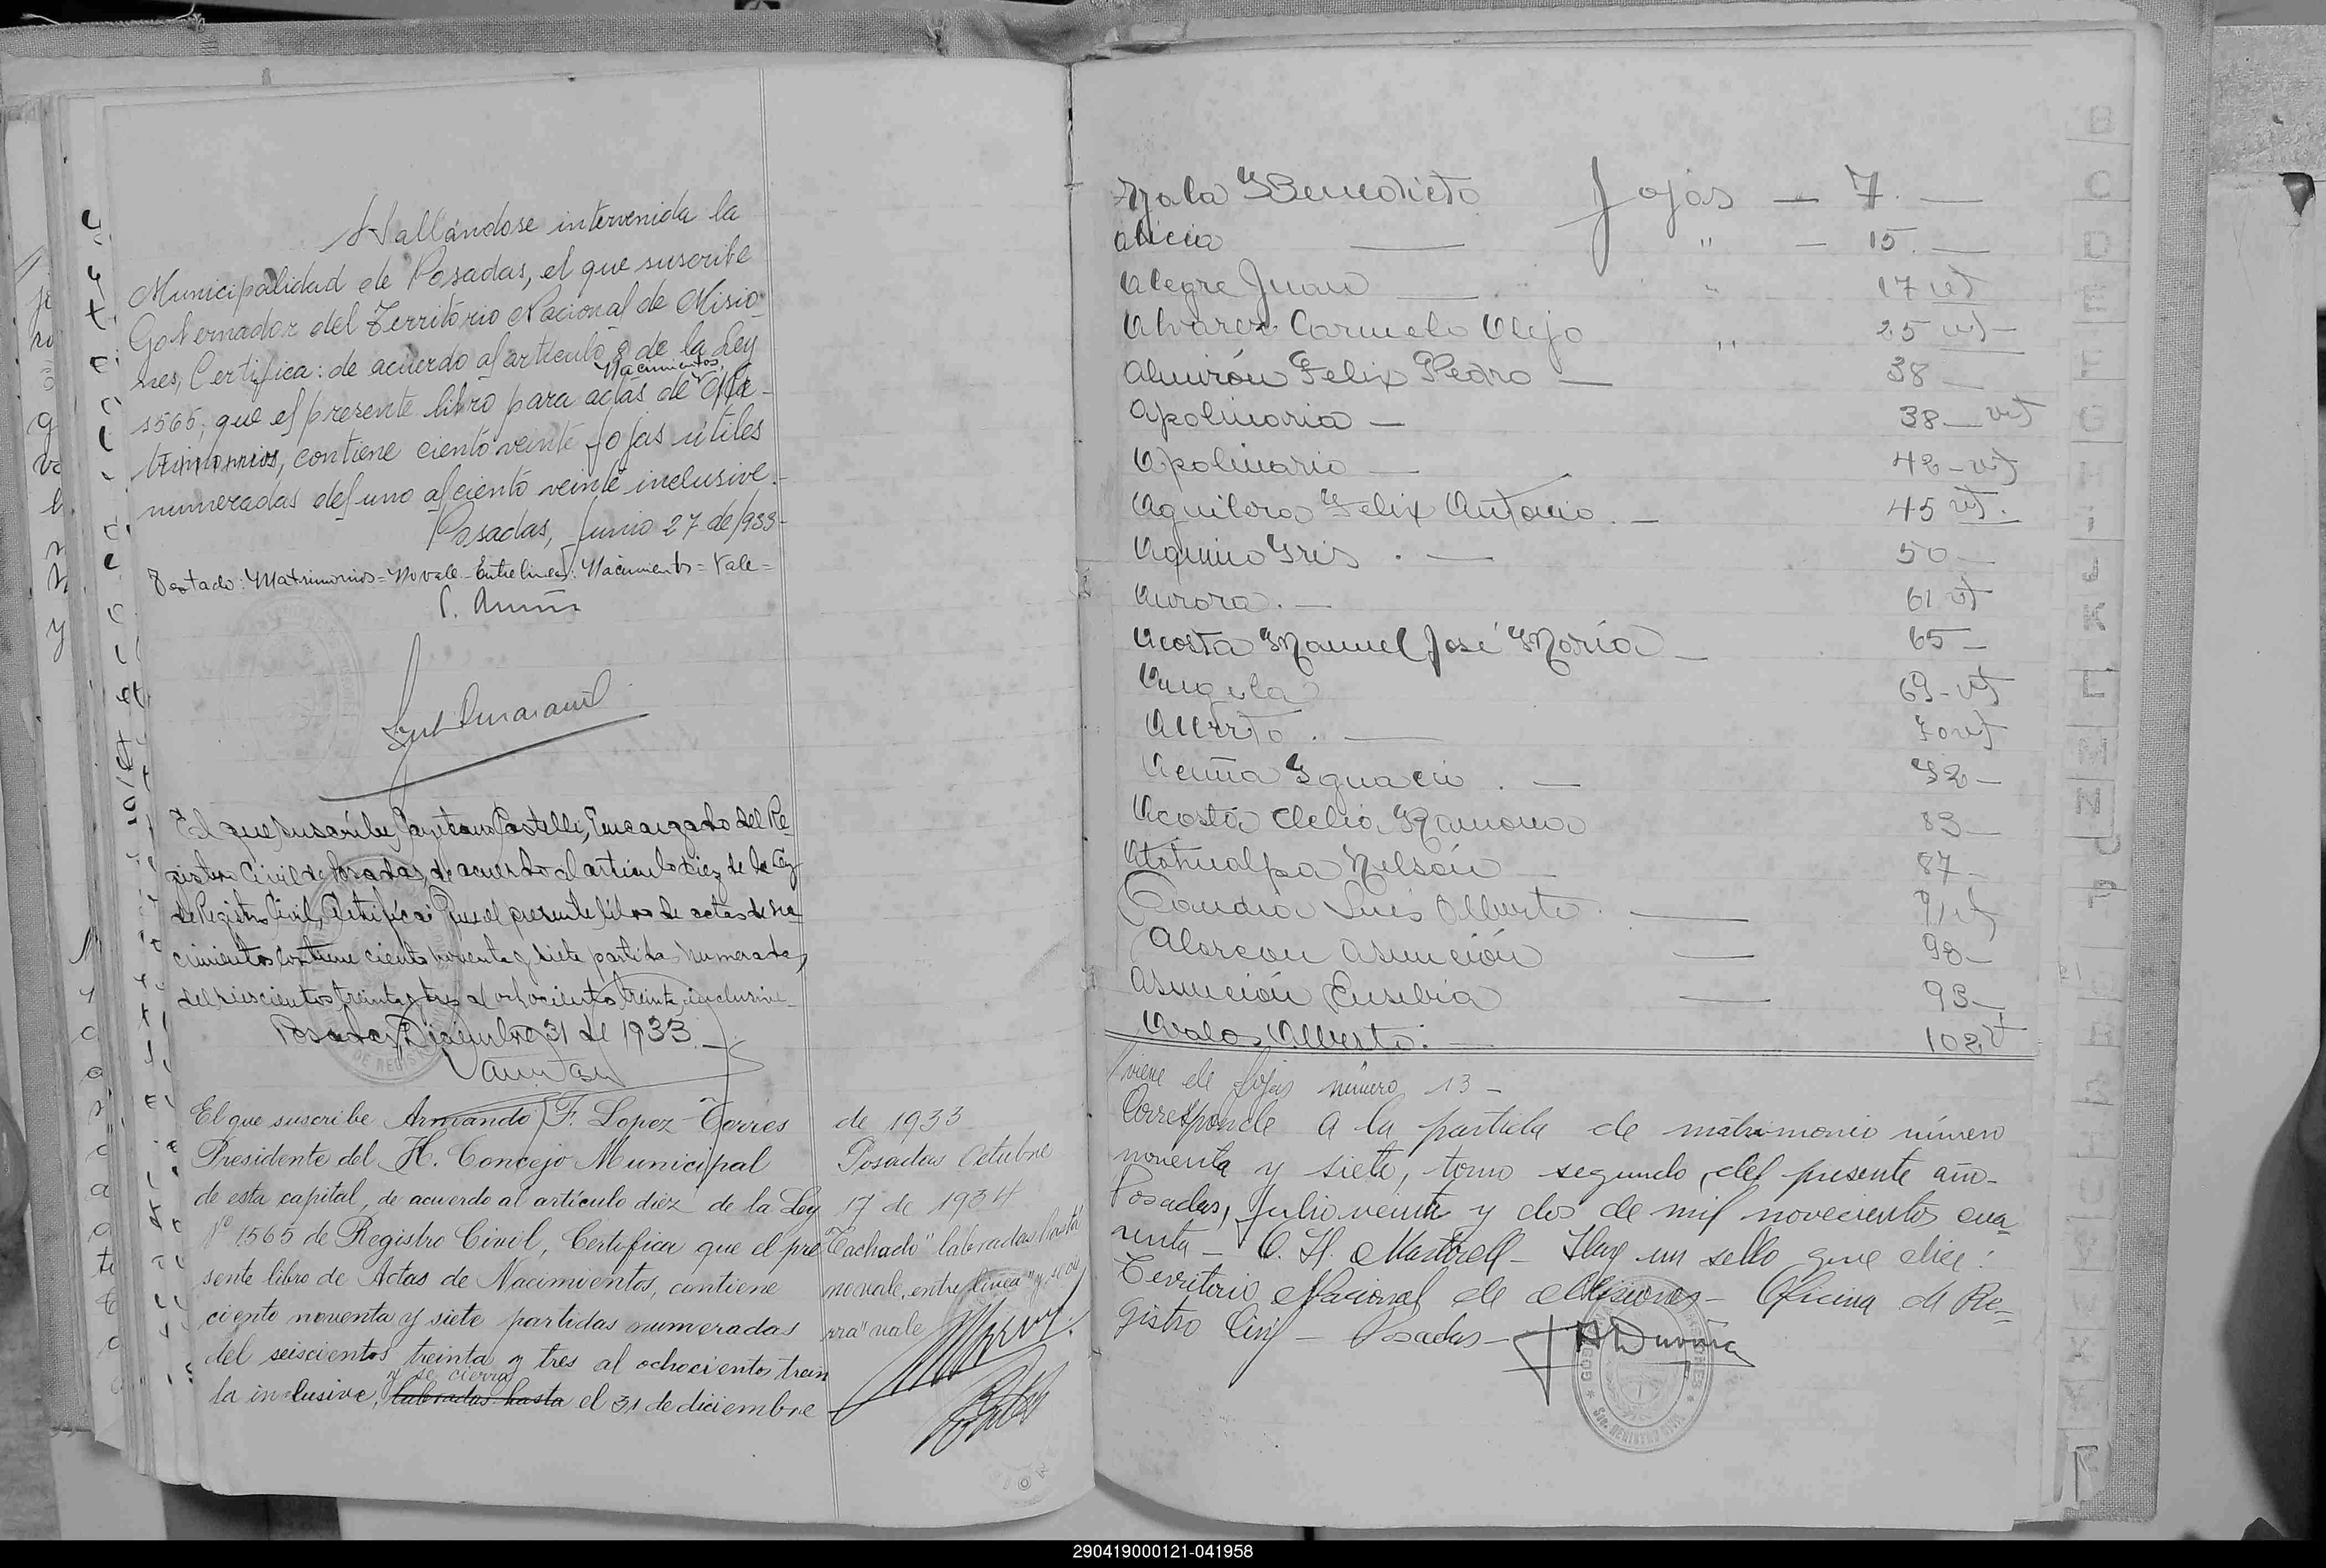 Hallándose intervenida la
Municipalidad de Posadas, el que suscribe
Gobernador del Territorio Nacional de Misio-
nes, Certifica: de acuerdo al articulo 8 de la Ley
Nacimientos
1565; que el presente libro para actas de Ma-
trimonios, contiene ciento veinte fojas útiles
numeradas del uno al ciento veinte inclusive.-
Posadas, Junio 27 de 1933-
Testado: Matrimonios = No vale - Entre lineas: Nacimientos = Vale =
El que suscribe Cayetano Castelli, Encargado del Re-
gistro Civil de Posadas, de acuerdo al artículo diez de la Ley
de Registro Civil, Certifica: Que el presente libro de actas de na-
cimientos contiene ciento noventa y siete partidas numeradas
del seiscientos treinta y tres al ochocientos treinta inclusive-
Posadas, Diciembre 31 de 1933.-
El que suscribe Armando F. Lopez Torres
Presidente del H. Concejo Municipal
de esta capital, de acuerdo al artículo diez de la Ley
Nº 1565 de Registro Civil, Certifica que el pre
sente libro de Actas de Nacimientos, contiene
ciento noventa y siete partidas numeradas
del seiscientos treinta y tres al ochocientos trein
y se cierra
ta inclusive, labradas hasta el 31 de diciembre
de 1933
Posadas Octubre
17 de 1934
Tachado "labradas hasta"
no vale, entre linea "y se cie
rra" vale
Ayala Benedicto Fojas - 7. -
Alicia " - 15. -
Alegre Juan " 17 vt
Alvarez Carmelo Alejo " 25 vt -
Almirón Felix Pedro - 38 -
Apolinaria - 38 - vt
Apolinario - 42 - vt
Aguilera Felix Antonio. - 45 vt.
Aquino Gris . - 50 -
Aurora. - 61 vt
Acosta Manuel José María - 65 -
Angela 69 - vt
Alberto . - 70 vt
Acuña Ignacio . -
Acosta Clelia Ramona 83 -
Atahualpa Nelsón - 87 -
Luis Alberto. - 91 vt
Alarcon Asunción - 93 -
Asunción Eusebia - 93 -
Avalos Alberto. - 102 vt
Viene de fojas número 13 -
Corresponde a la partida de matrimonio número
noventa y siete, tomo segundo, del presente año-
Posadas, Julio veinte y dos de mil novecientos cua
renta - C. H. Martorell - Hay un sello que dice:
Territorio Nacional de Misiones - Oficina de Re-
gistro Civil - Posadas -
B
C
D
E
F
G
H
I
J
K
L
M
N
O
P
290419000121-041958